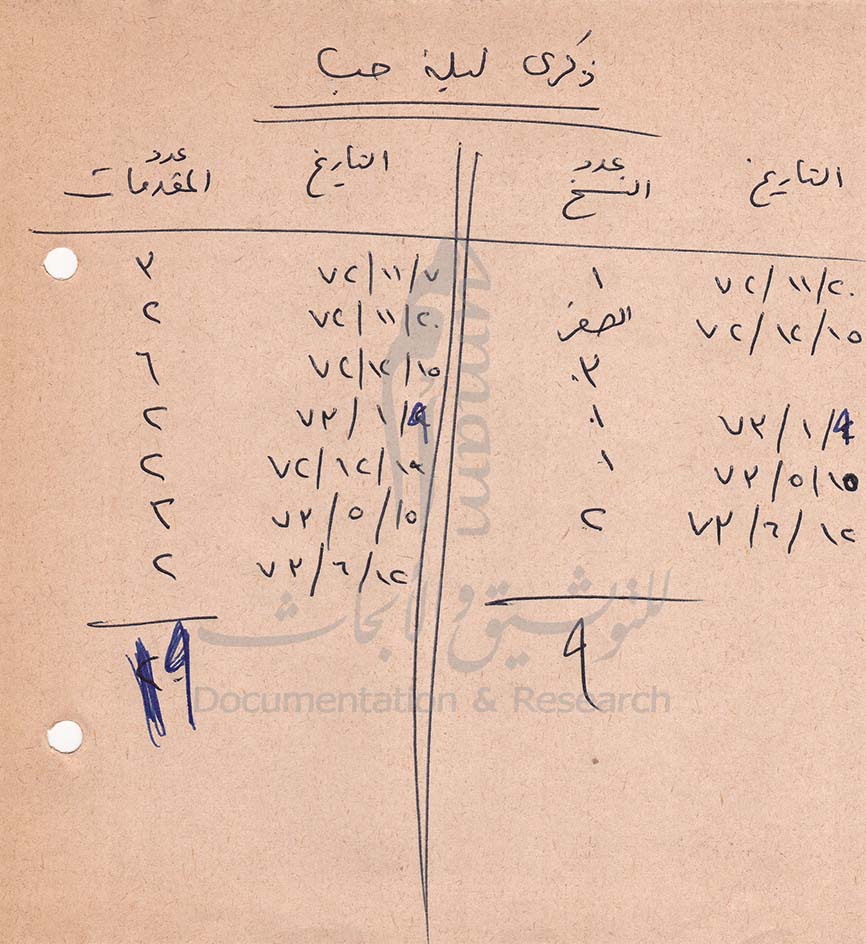 ذكرى ليلة حب
التاريخ عدد النسخ التاريخ عدد المقدمات
٧٢/١١/٢٠ ١ ٧٢/١١/٧ ٣
٧٢/١٢/١٥ الصفر ٧٢/١١/٢٠ ٢
٣ ٧٢/١٢/١٥ ٦
٧٣/١/٩ ١ ٧٣/١/٩ ٢
٧٣/٥/١٥ ١ ٧٢/١٢/١٩ ٢
٧٣/٦/١٢ ٢ ٧٣/٥/١٥ ٣
٧٣/٦/١٢ ٢
٩
umam
للتوثيق والأبحاث
Documentation & Research